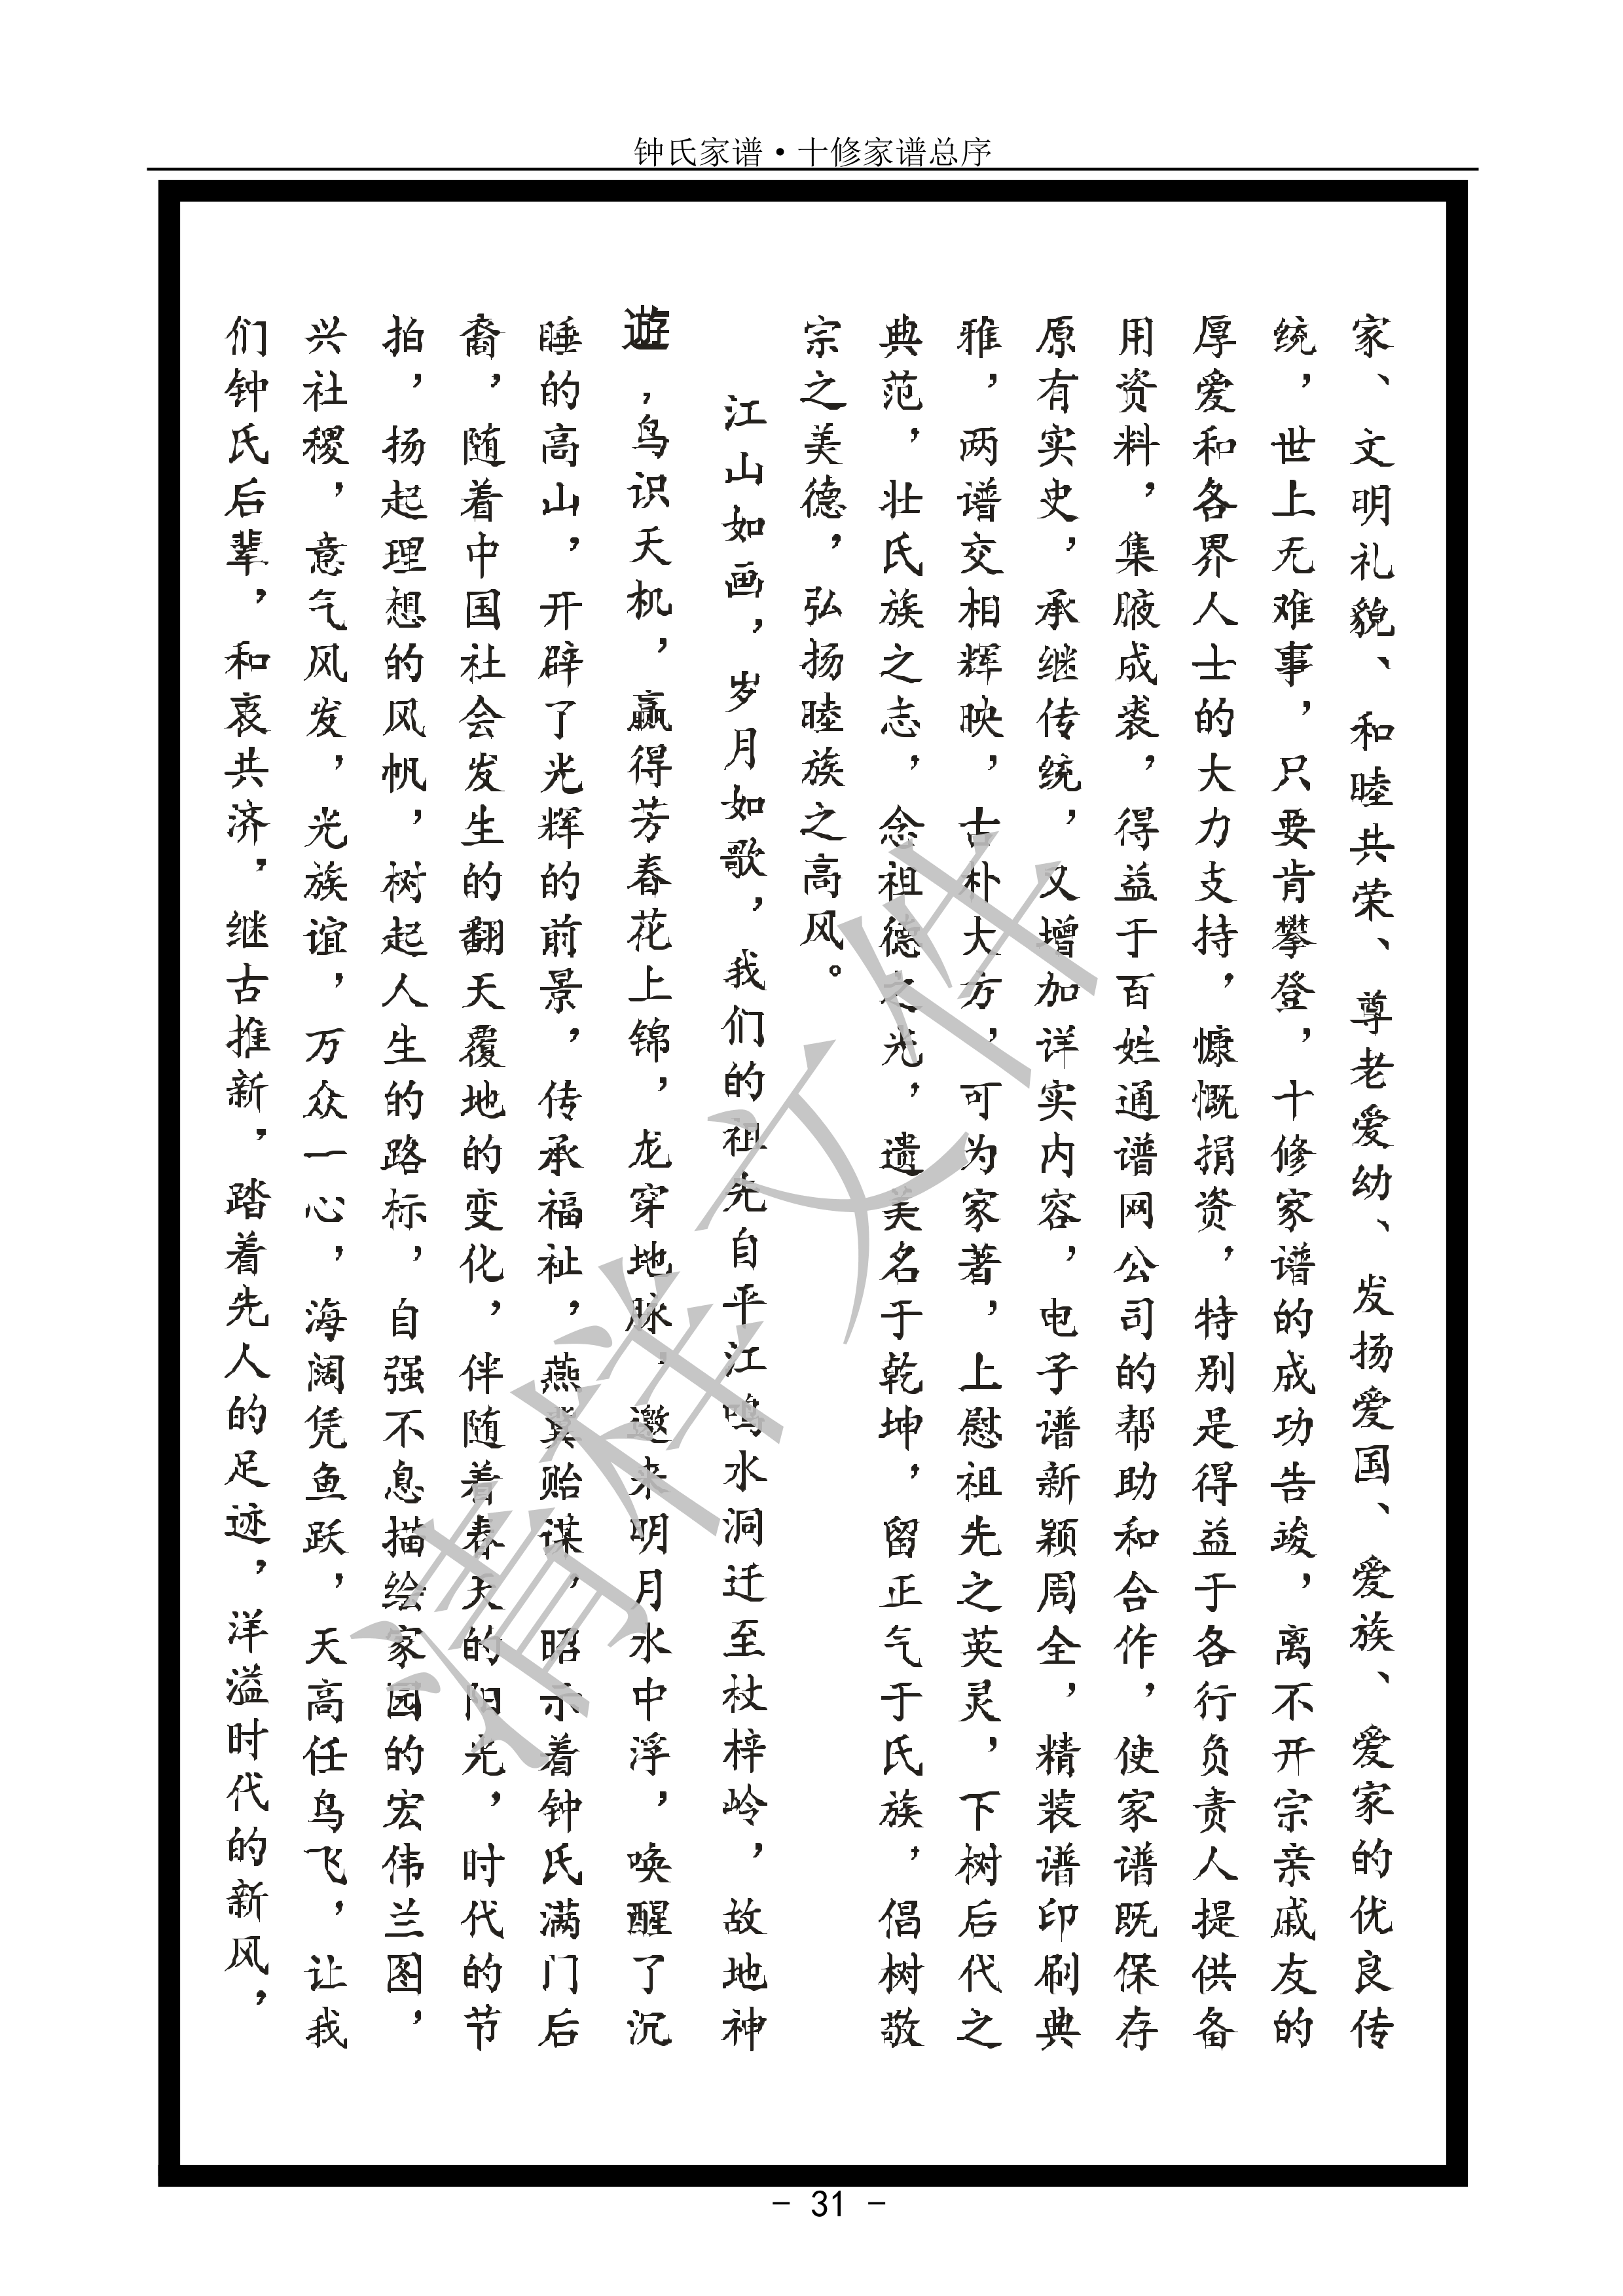 钟氏家谱·十修家谱总序
家、文明礼貌、和睦共荣、尊老爱幼、发扬爱国、爱族、爱家的优良传
统，世上无难事，只要肯攀登，十修家谱的成功告竣，离不开宗亲戚友的
厚爱和各界人士的大力支持，慷慨捐资，特别是得益于各行负责人提供备
用资料，集腋成裘，得益于百姓通谱网公司的帮助和合作，使家谱既保存
原有实史，承继传统，又增加详实内容，电子谱新颖周全，精装谱印刷典
雅，两谱交相辉映，古朴大方，可为家著，上慰祖先之英灵，下树后代之
典范，壮氏族之志，念祖德之光，遗美名于乾坤，留正气于氏族，倡树敬
宗之美德，弘扬睦族之高风。
江山如画，岁月如歌，我们的祖先自平江鸣水洞迁至杖梓岭，故地神
遊，鸟识天机，赢得芳春花上锦，龙穿地脉，邀来明月水中浮，唤醒了沉
睡的高山，开辟了光辉的前景，传承福祉，燕冀贻谋，昭示着钟氏满门后
裔，随着中国社会发生的翻天覆地的变化，伴随着春天的阳光，时代的节
拍，扬起理想的风帆，树起人生的路标，自强不息描绘家园的宏伟兰图，
兴社稷，意气风发，光族谊，万众一心，海阔凭鱼跃，天高任鸟飞，让我
们钟氏后辈，和衷共济，继古推新，踏着先人的足迹，洋溢时代的新风，
清样文件
- 31 -